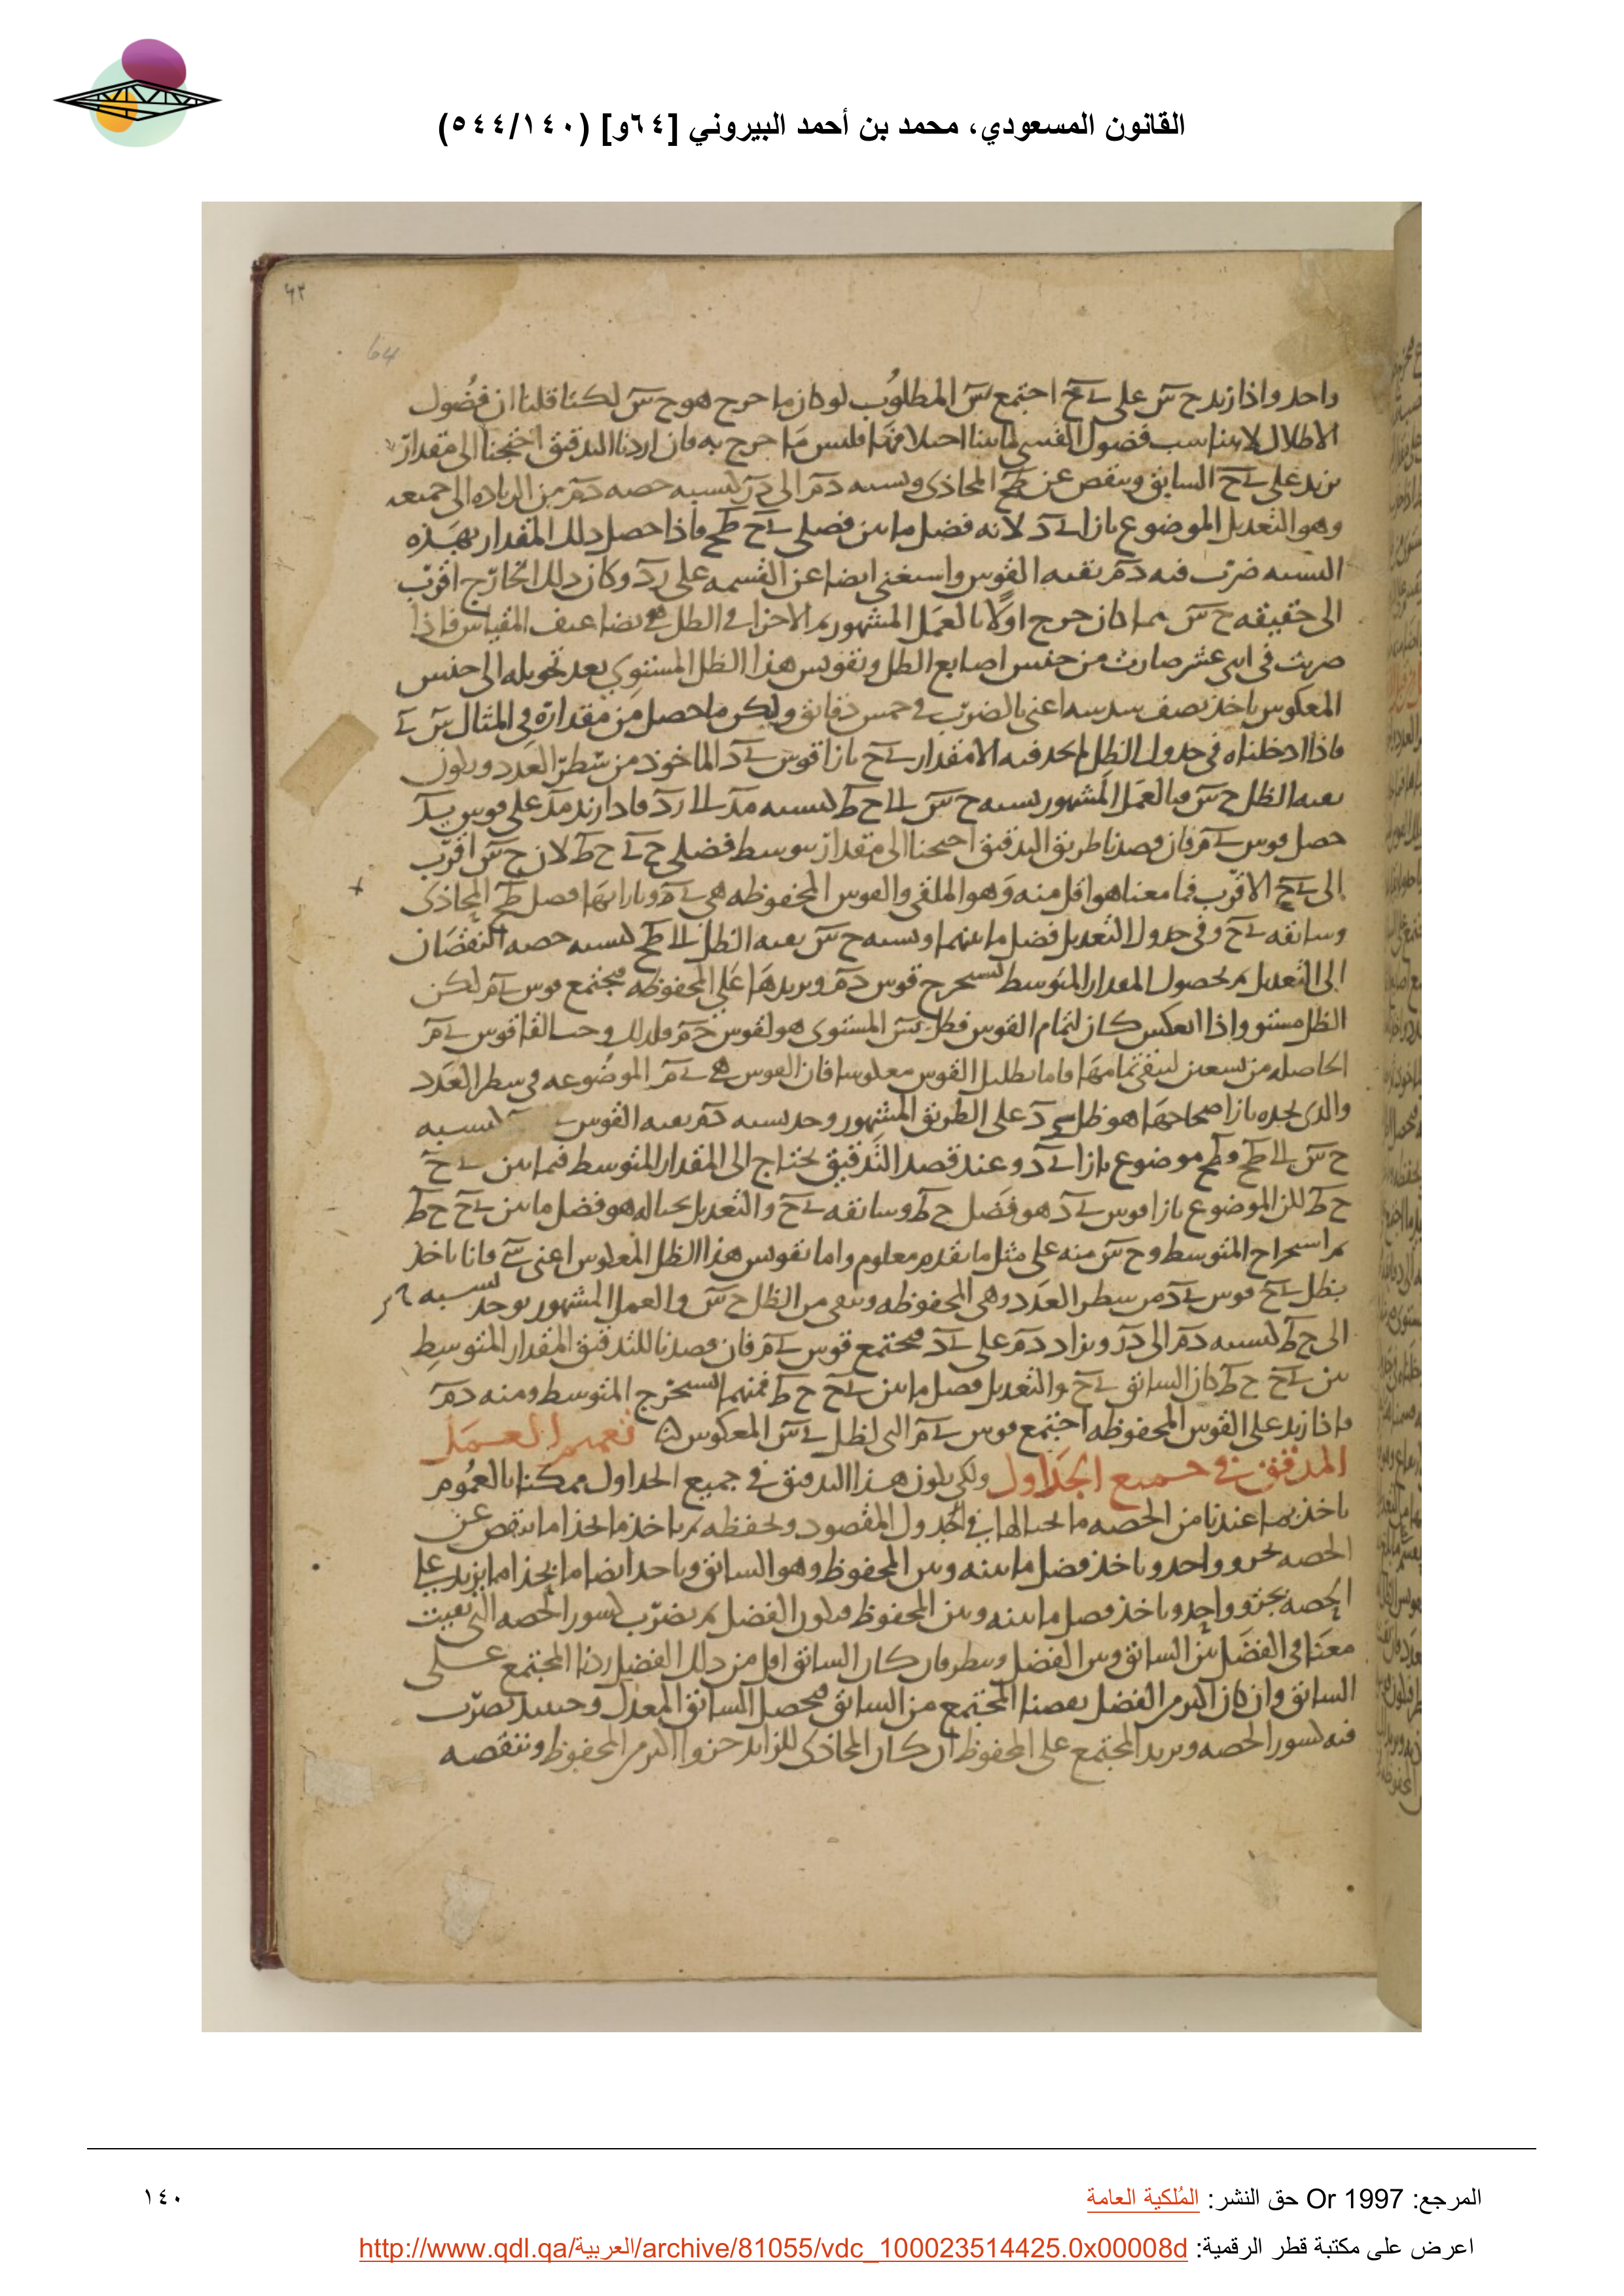 القانون المسعودي، محمد بن أحمد البيروني [٦٤و] (٥٤٤/١٤٠)
٦٣
64
واحد واذا زيد ح س على ى ح اجتمع س المطلوب لو كان ما خرج هو ح س لكنا قلنا ان فضول
الاظلال لا يناسب فضول القسى لما بينا اختلافها فليس ما خرج به فان اردنا التدقيق احتجنا الى مقدار
يزيد على ى ح السابق وينقص عن ط ح المحاذى ونسبه د م الى د ر كنسبه حصه د م من الزياده الى جميعه
وهو التعديل الموضوع بازا ى د لانه فضل ما بين فضلى ى ح ط ح فاذا حصل ذلك المقدار بهذه
النسبه ضرب فيه د م بقيه القوس واستغنى ايضا عن القسمه على ر د وكان ذلك الخارج اقرب
الى حقيقه ح س مما كان خرج اولا بالعمل المشهور ثم الاجزا فى الظل هى تضاعيف المقياس فاذا
ضربت فى اثنى عشر صارت من جنس اصابع الظل وتقويس هذا الظل المستوى بعد تحويله الى جنس
المعكوس باخذ نصف سدسه اعنى بالضرب فى خمس دقائق وليكن ما حصل من مقداره فى المثال س ى
فاذا ادخلناه فى جدول الظل لم نجد فيه الا مقدار ى ح بازا قوس ى د الماخوذ من سطر العدد ويكون
بقيه الظل ح س فبالعمل المشهور نسبه ح س الى ح ط كنسبه م د الى ر د فاذا زيد م د على قوس ى د
حصل قوس ى م فان قصدنا طريق التدقيق احتجنا الى مقدار يتوسط فضلى ح ى ح ط لان ح س اقرب
الى ى ح الاقرب فما معنا هو اقل منه وهو الملقى والقوس المحفوظه هى ى د وبازائها فضل ط ح المحاذى
وسابقه ى ح وفى جدول التعديل فضل ما بينهما ونسبه ح س بقيه الظل الى ط ح كنسبه حصه النقصان
الى التعديل ثم بحصول المقدار المتوسط نستخرج قوس د م ونزيدها على المحفوظه فيجتمع قوس ى م لكن
الظل مستو واذا انعكس كان لتمام القوس فظل س المستوى هو لقوس ح م فلذلك وجب القا قوس ى م
الحاصله من تسعين ليبقى تمامها فاما تظليل القوس معكوسا فان القوس هى ى م الموضوعه فى سطر العدد
والذى نجده بازا صحاحها هو ظل ى د على الطريق المشهور وحد نسبه د م بقيه القوس كنسبه
ح س الى ط ح و ط ح موضوع بازا ى د وعند قصد التدقيق نحتاج الى المقدار المتوسط فيما بين ى ح
ح ط لكن الموضوع بازا قوس ى د هو فضل ح ط وسابقه ى ح والتعديل بحياله هو فضل ما بين ى ح ح ط
ثم استخراج المتوسط و ح س منه على مثل ما تقدم معلوم واما تقويس هذا الظل المعكوس اعنى س ى فانا ناخذ
بظل ى ح قوس ى د من سطر العدد وهى المحفوظه ويبقى من الظل ح س وبالعمل المشهور يوجد نسبه
الى ح ط كنسبه د م الى د ر ويزاد د م على ى د فيجتمع قوس ى م فان قصدنا للتدقيق المقدار المتوسط
بين ى ح ح ط كان السابق ى ح والتعديل فضل ما بين ى ح ح ط فمنهما نستخرج المتوسط ومنه د م
فاذا زيد على القوس المحفوظه اجتمع قوس ى م التى لظل ى س المعكوس تعميم العمل
المدقق فى جميع الجداول ولكى يكون هذا التدقيق فى جميع الجداول ممكنا بالعموم
ناخذ بما عندنا من الحصه ما بحيالها فى الجدول المقصود ونحفظه ثم ناخذ ما بحذا ما ينقص عن
الحصه بجزو واحد وناخذ فضل ما بينه وبين المحفوظ وهو السابق وناخذ ايضا ما بحذا ما يزيد على
الحصه بجزو واحد وناخذ فضل ما بينه وبين المحفوظ فيكون الفضل ثم نضرب كسور الحصه التى بقيت
معنا فى الفضل بين السابق وبين الفضل وننظر فان كان السابق اقل من ذلك الفضل زدنا المجتمع على
السابق وان كان اكثر من الفضل نقصنا المجتمع من السابق فيحصل السابق المعدل وحينئذ نضرب
فيه كسور الحصه ونزيد المجتمع على المحفوظ ان كان المحاذى للزائد جزوا اكثر من المحفوظ وننقصه
المرجع: Or 1997 حق النشر: المُلكية العامة
١٤٠
اعرض على مكتبة قطر الرقمية: http://www.qdl.qa/العربية/archive/81055/vdc_100023514425.0x00008d